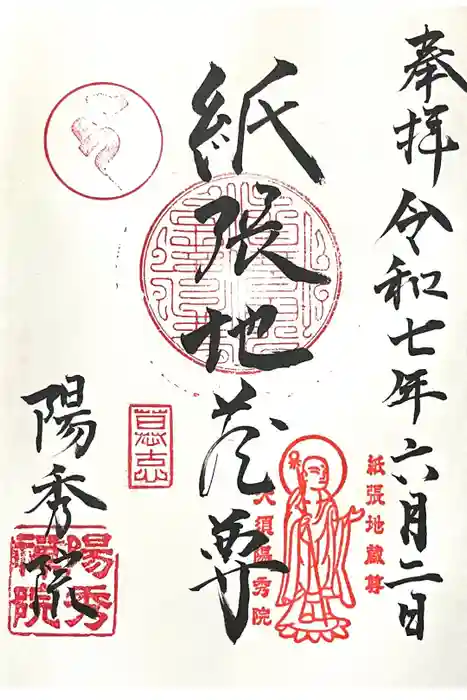 奉拝 令和七年六月二日
紙張地蔵尊
陽秀院
紙張地蔵尊
大須陽秀院
陽秀
禅院